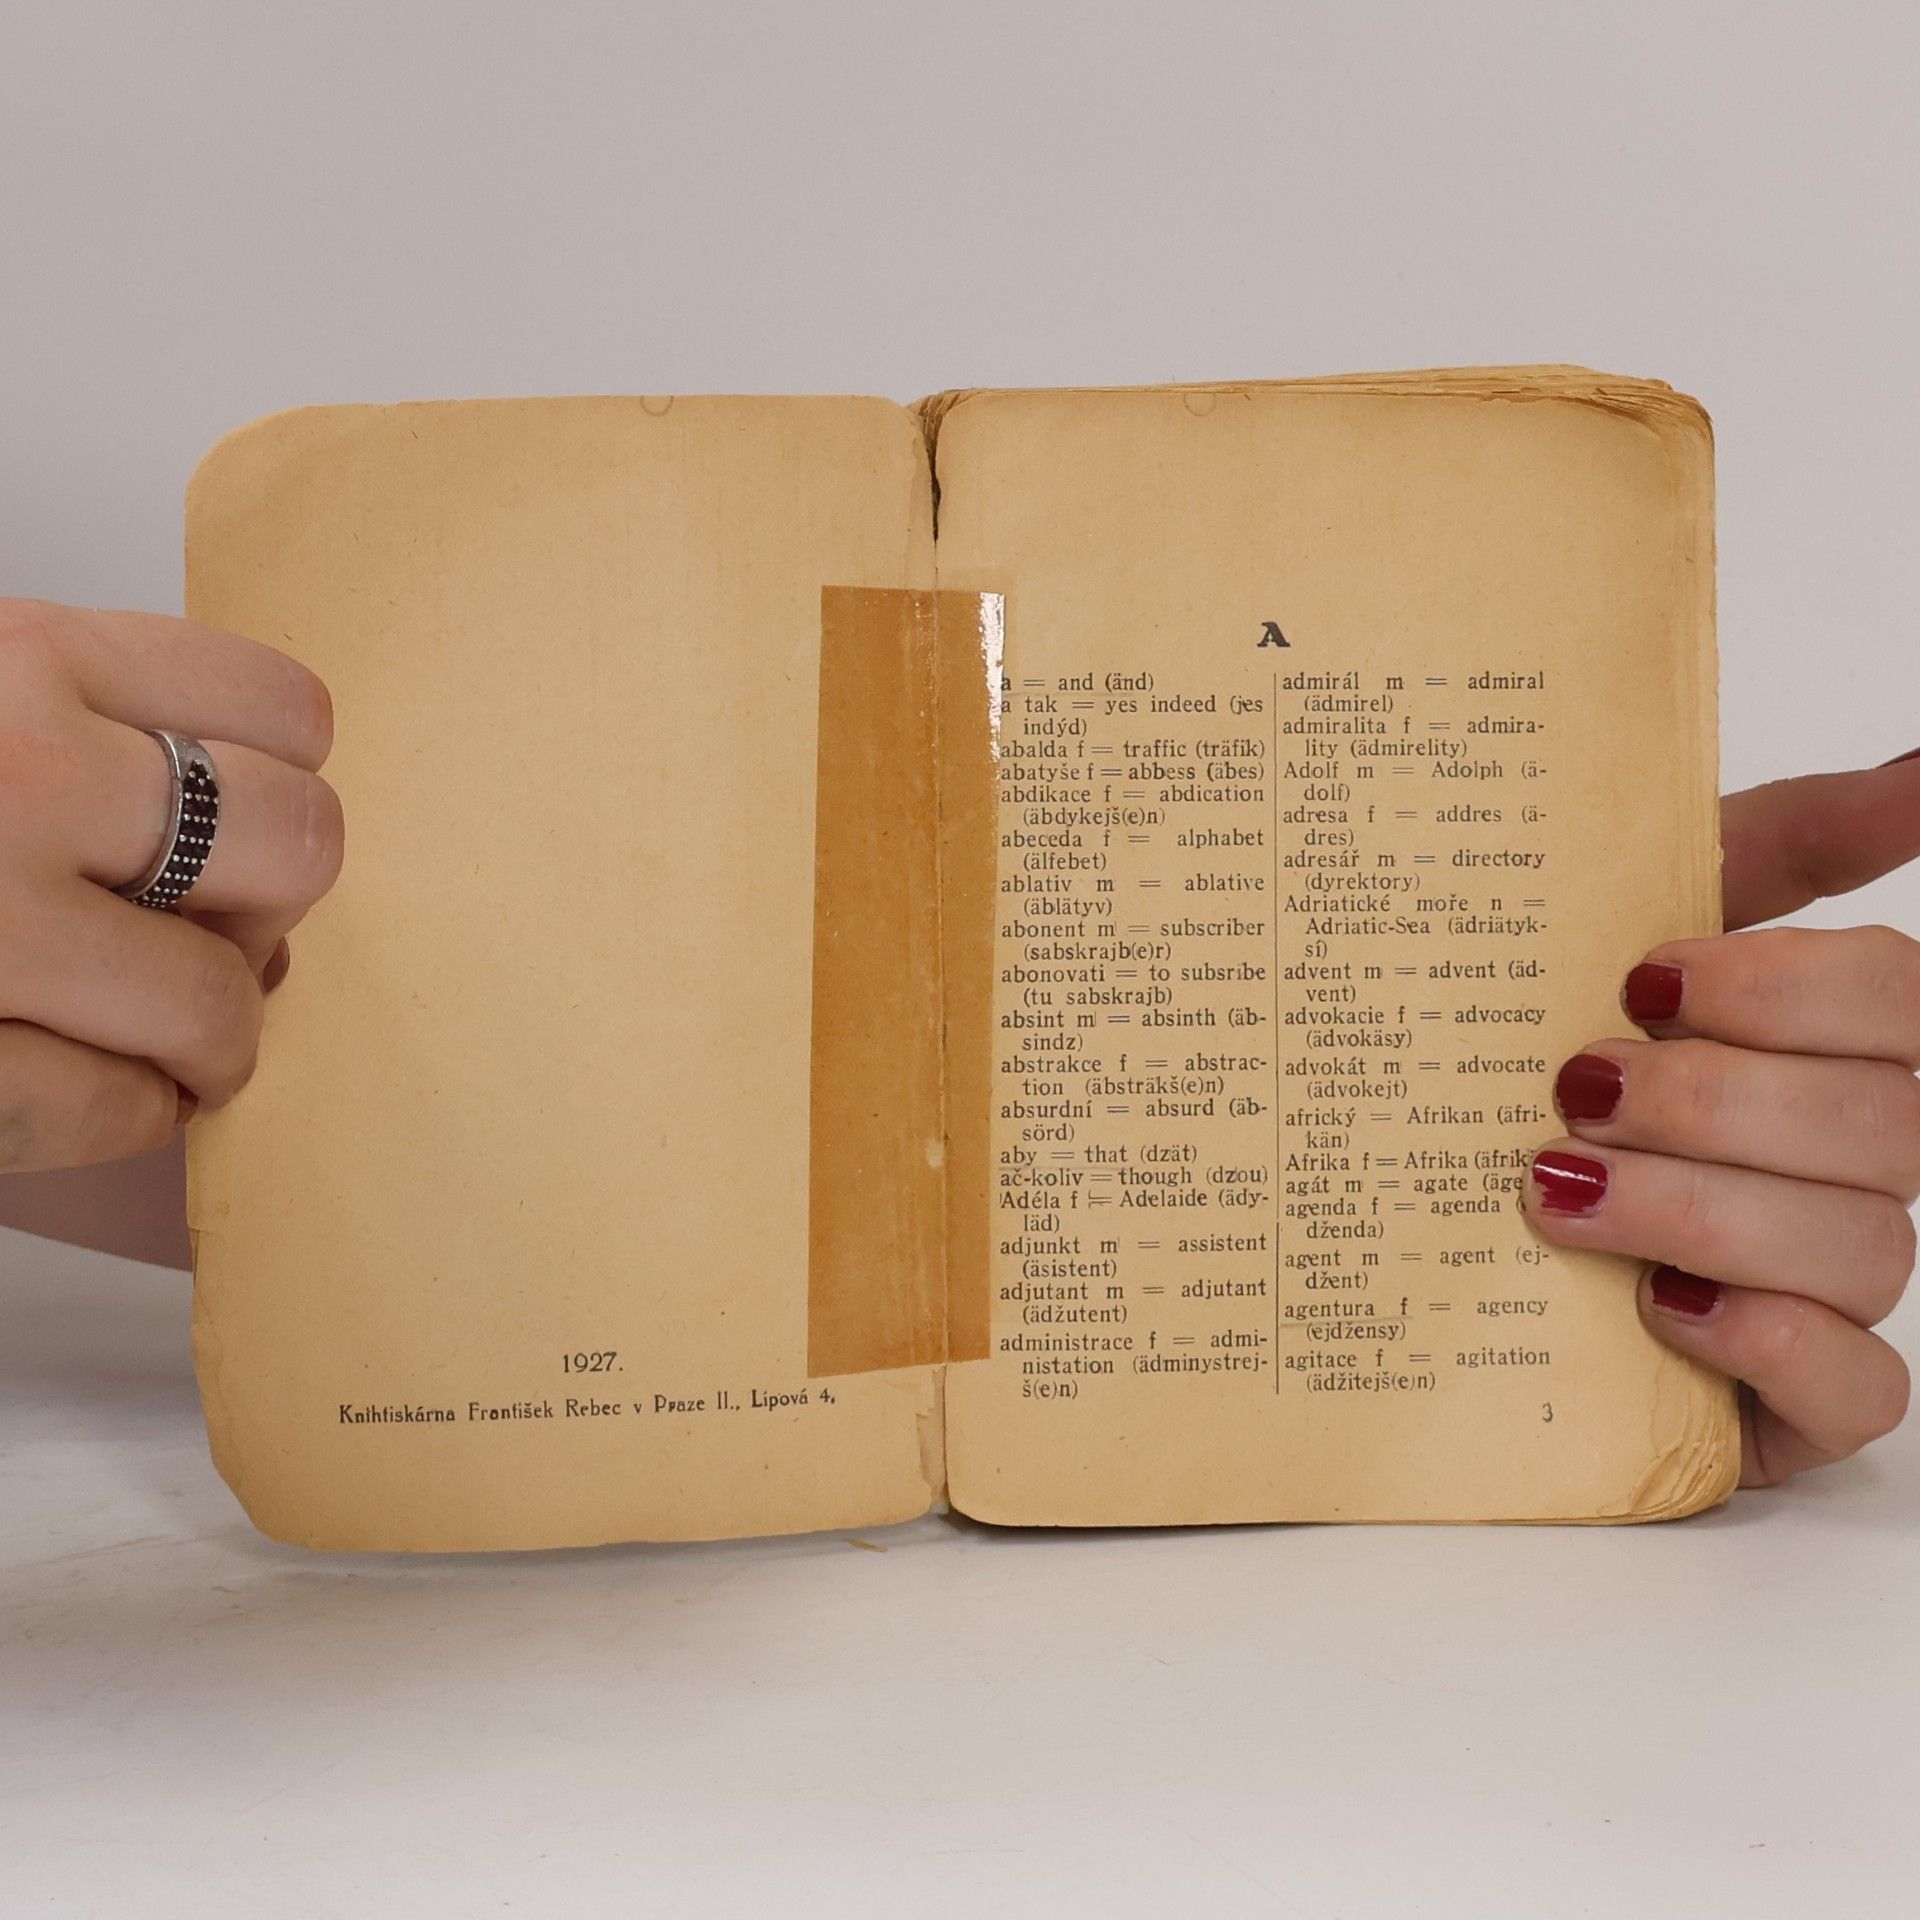 1927.
Knihtiskárna František Rebec v Praze II., Lípová 4,
A
a = and (änd)
a tak = yes indeed (jes
indýd)
abalda f = traffic (träfik)
abatyše f = abbess (äbes)
abdikace f = abdication
(äbdykejš(e)n)
abeceda f = alphabet
(älfebet)
ablativ m = ablative
(äblätyv)
abonent m = subscriber
(sabskrajb(e)r)
abonovati = to subsribe
(tu sabskrajb)
absint m = absinth (äb-
sindz)
abstrakce f = abstrac-
tion (äbsträkš(e)n)
absurdní = absurd (äb-
sörd)
aby = that (dzät)
ač-koliv = though (dzou)
Adéla f = Adelaide (ädy-
läd)
adjunkt m = assistent
(äsistent)
adjutant m = adjutant
(ädžutent)
administrace f = admi-
nistation (ädminystrej-
š(e)n)
admirál m = admiral
(ädmirel)
admiralita f = admira-
lity (ädmirelity)
Adolf m = Adolph (ä-
dolf)
adresa f = addres (ä-
dres)
adresář m = directory
(dyrektory)
Adriatické moře n =
Adriatic-Sea (ädriätyk-
sí)
advent m = advent (äd-
vent)
advokacie f = advocacy
(ädvokäsy)
advokát m = advocate
(ädvokejt)
africký = Afrikan (äfri-
kän)
Afrika f = Afrika (äfrik
agát m = agate (äge
agenda f = agenda (
dženda)
agent m = agent (ej-
džent)
agentura f = agency
(ejdžensy)
agitace f = agitation
(ädžitejš(e)n)
3